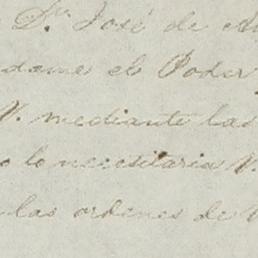 Dn. José de
dame el Poder
V. mediante las
lo necesitaria V.
las ordenes de V